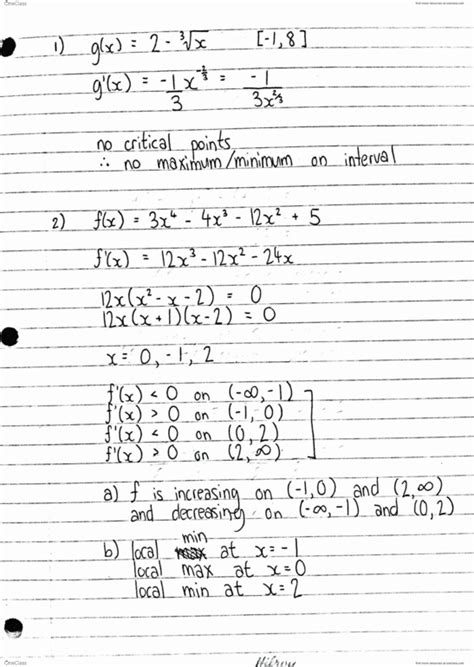 OneClass
1) g(x) = 2 - ∛x [-1,8]
g'(x) = -1/3 x^(-2/3) = -1/(3x^(2/3))
no critical points
∴ no maximum/minimum on interval
2) f(x) = 3x⁴ - 4x³ - 12x² + 5
f'(x) = 12x³ - 12x² - 24x
12x(x² - x - 2) = 0
12x(x + 1)(x - 2) = 0
x = 0, -1, 2
f'(x) < 0 on (-∞, -1)
f'(x) > 0 on (-1, 0)
f'(x) < 0 on (0, 2)
f'(x) > 0 on (2, ∞)
a) f is increasing on (-1,0) and (2, ∞)
and decreasing on (-∞, -1) and (0, 2)
b) local min at x = -1
local max at x = 0
local min at x = 2
OneClass